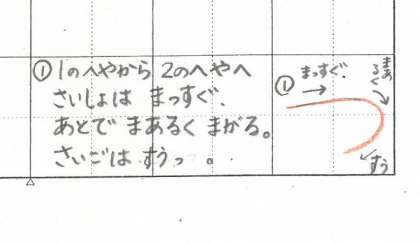 ① 1のへやから 2のへやへ
さいしょは まっすぐ、
あとで まあるく まがる。
さいごは すうっ 。
① まっすぐ、
まあるく
すう